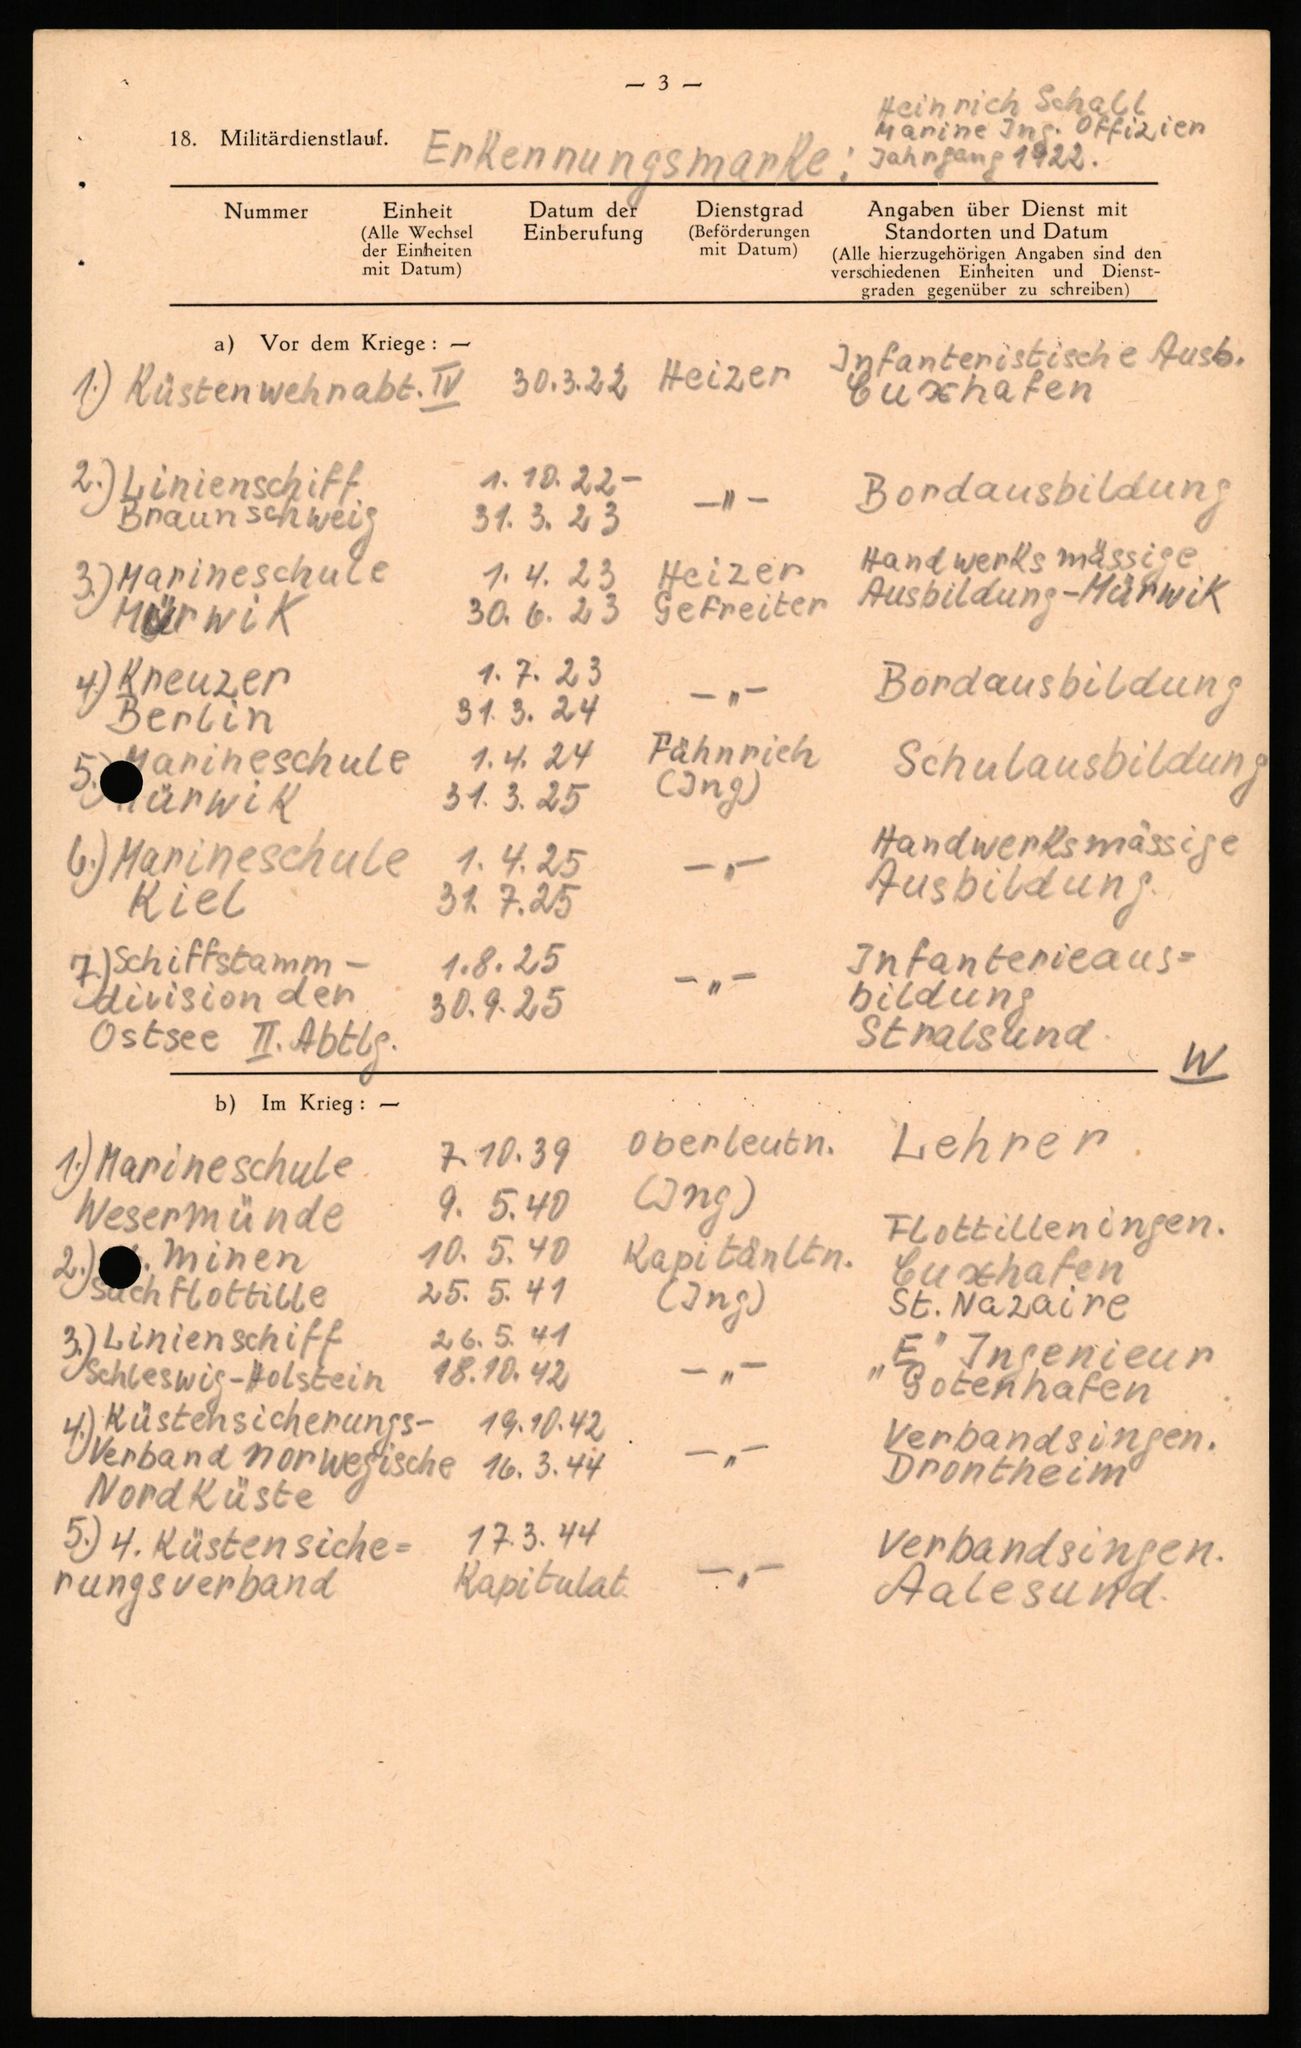 — 3 —
Heinrich Schall
Marine Ing. Offizier
Jahrgang 1922.
18. Militärdienstlauf.
Erkennungsmarke:
Nummer
Einheit
(Alle Wechsel
der Einheiten
mit Datum)
Datum der
Einberufung
Dienstgrad
(Beförderungen
mit Datum)
Angaben über Dienst mit
Standorten und Datum
(Alle hierzugehörigen Angaben sind den
verschiedenen Einheiten und Dienst-
graden gegenüber zu schreiben)
a) Vor dem Kriege: —
1.) Küstenwehrabt. IV 30.3.22 Heizer Infanteristische Ausb.
Cuxhafen
2.) Linienschiff 1.10.22- —"— Bordausbildung
Braunschweig 31.3.23
3.) Marineschule 1.4.23 Heizer Handwerksmässige
Mürwik 30.6.23 Gefreiter Ausbildung-Mürwik
4.) Kreuzer 1.7.23 —"— Bordausbildung
Berlin 31.3.24
5.) Marineschule 1.4.24 Fähnrich Schulausbildung
Mürwik 31.3.25 (Ing)
6.) Marineschule 1.4.25 —"— Handwerksmässige
Kiel 31.7.25 Ausbildung.
7.) Schiffstamm- 1.8.25 —"— Infanterieaus=
division der 30.9.25 bildung
Ostsee II. Abtlg. Stralsund.
W
b) Im Krieg: —
1.) Marineschule 7.10.39 Oberleutn. Lehrer
Wesermünde 9.5.40 (Ing)
2.) Minen 10.5.40 Kapitänltn. Flottilleningen.
Suchflottille 25.5.41 (Ing) Cuxhafen
St. Nazaire
3.) Linienschiff 26.5.41 —"— „E" Ingenieur
Schleswig-Holstein 18.10.42 Gotenhafen
4.) Küstensicherungs- 19.10.42 —"— Verbandsingen.
Verband norwegische 16.3.44 Drontheim
Nordküste
5.) 4. Küstensiche= 17.3.44 —"— Verbandsingen.
rungsverband Kapitulat. Aalesund.